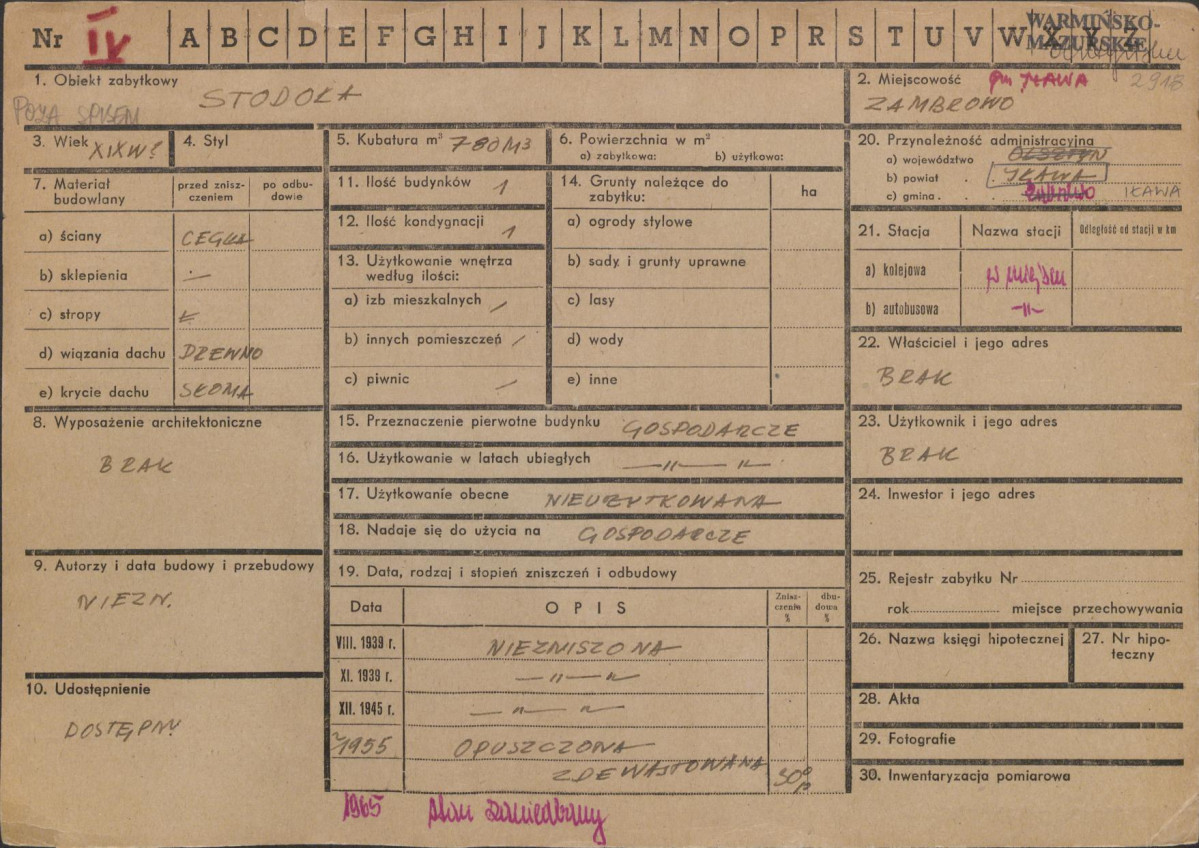 Nr IV A B C D E F G H I J K L M N O P R S T U V W X Y Z
WARMIŃSKO-
MAZURSKIE
1. Obiekt zabytkowy
STODOŁA
POZA SPISEM
2. Miejscowość
pow IŁAWA
2918
ZAMBROWO
3. Wiek XIX W?
4. Styl
5. Kubatura m³ 780 M3
6. Powierzchnia w m²
a) zabytkowa: b) użytkowa:
20. Przynależność administracyjna
a) województwo OLSZTYN
b) powiat . IŁAWA
c) gmina . . IŁAWA
7. Materiał budowlany
przed zniszczeniem
po odbudowie
a) ściany CEGŁA
b) sklepienia —
c) stropy
d) wiązania dachu DRZEWNO
e) krycie dachu SŁOMA
11. Ilość budynków 1
12. Ilość kondygnacji 1
13. Użytkowanie wnętrza
według ilości:
a) izb mieszkalnych /
b) innych pomieszczeń /
c) piwnic /
14. Grunty należące do
zabytku:
ha
a) ogrody stylowe
b) sady i grunty uprawne
c) lasy
d) wody
e) inne
21. Stacja
Nazwa stacji
Odległość od stacji w km
a) kolejowa w miejscu
b) autobusowa —"—
22. Właściciel i jego adres
BRAK
8. Wyposażenie architektoniczne
BRAK
15. Przeznaczenie pierwotne budynku GOSPODARCZE
16. Użytkowanie w latach ubiegłych —"— "—
17. Użytkowanie obecne NIEUŻYTKOWANA
18. Nadaje się do użycia na GOSPODARCZE
23. Użytkownik i jego adres
BRAK
24. Inwestor i jego adres
9. Autorzy i data budowy i przebudowy
NIEZN.
10. Udostępnienie
DOSTĘPNY
19. Data, rodzaj i stopień zniszczeń i odbudowy
Data
OPIS
Znisz-
czenia
%
dbu-
dowa
%
VIII. 1939 r. NIEZNISZONA
XI. 1939 r. —"— "—
XII. 1945 r. —"— "—
~1955 OPUSZCZONA
ZDEWASTOWANA 30%
1965 stan zaniedbany
25. Rejestr zabytku Nr
rok miejsce przechowywania
26. Nazwa księgi hipotecznej
27. Nr hipo-
teczny
28. Akta
29. Fotografie
30. Inwentaryzacja pomiarowa